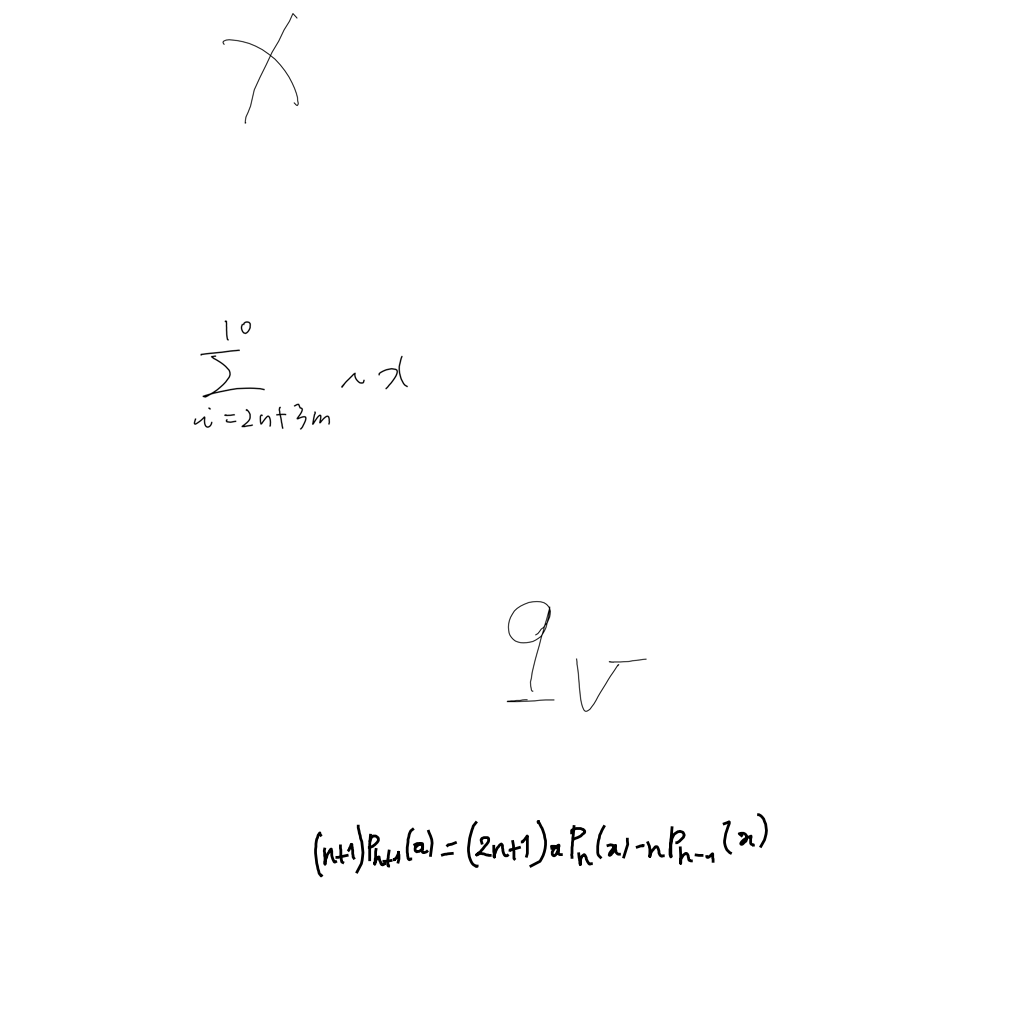 X
\sum_{i=2n+3m}^{10} ix
\underline{9}v
(n+1)P_{n+1}(x)=(2n+1)xP_n(x)-nP_{n-1}(x)